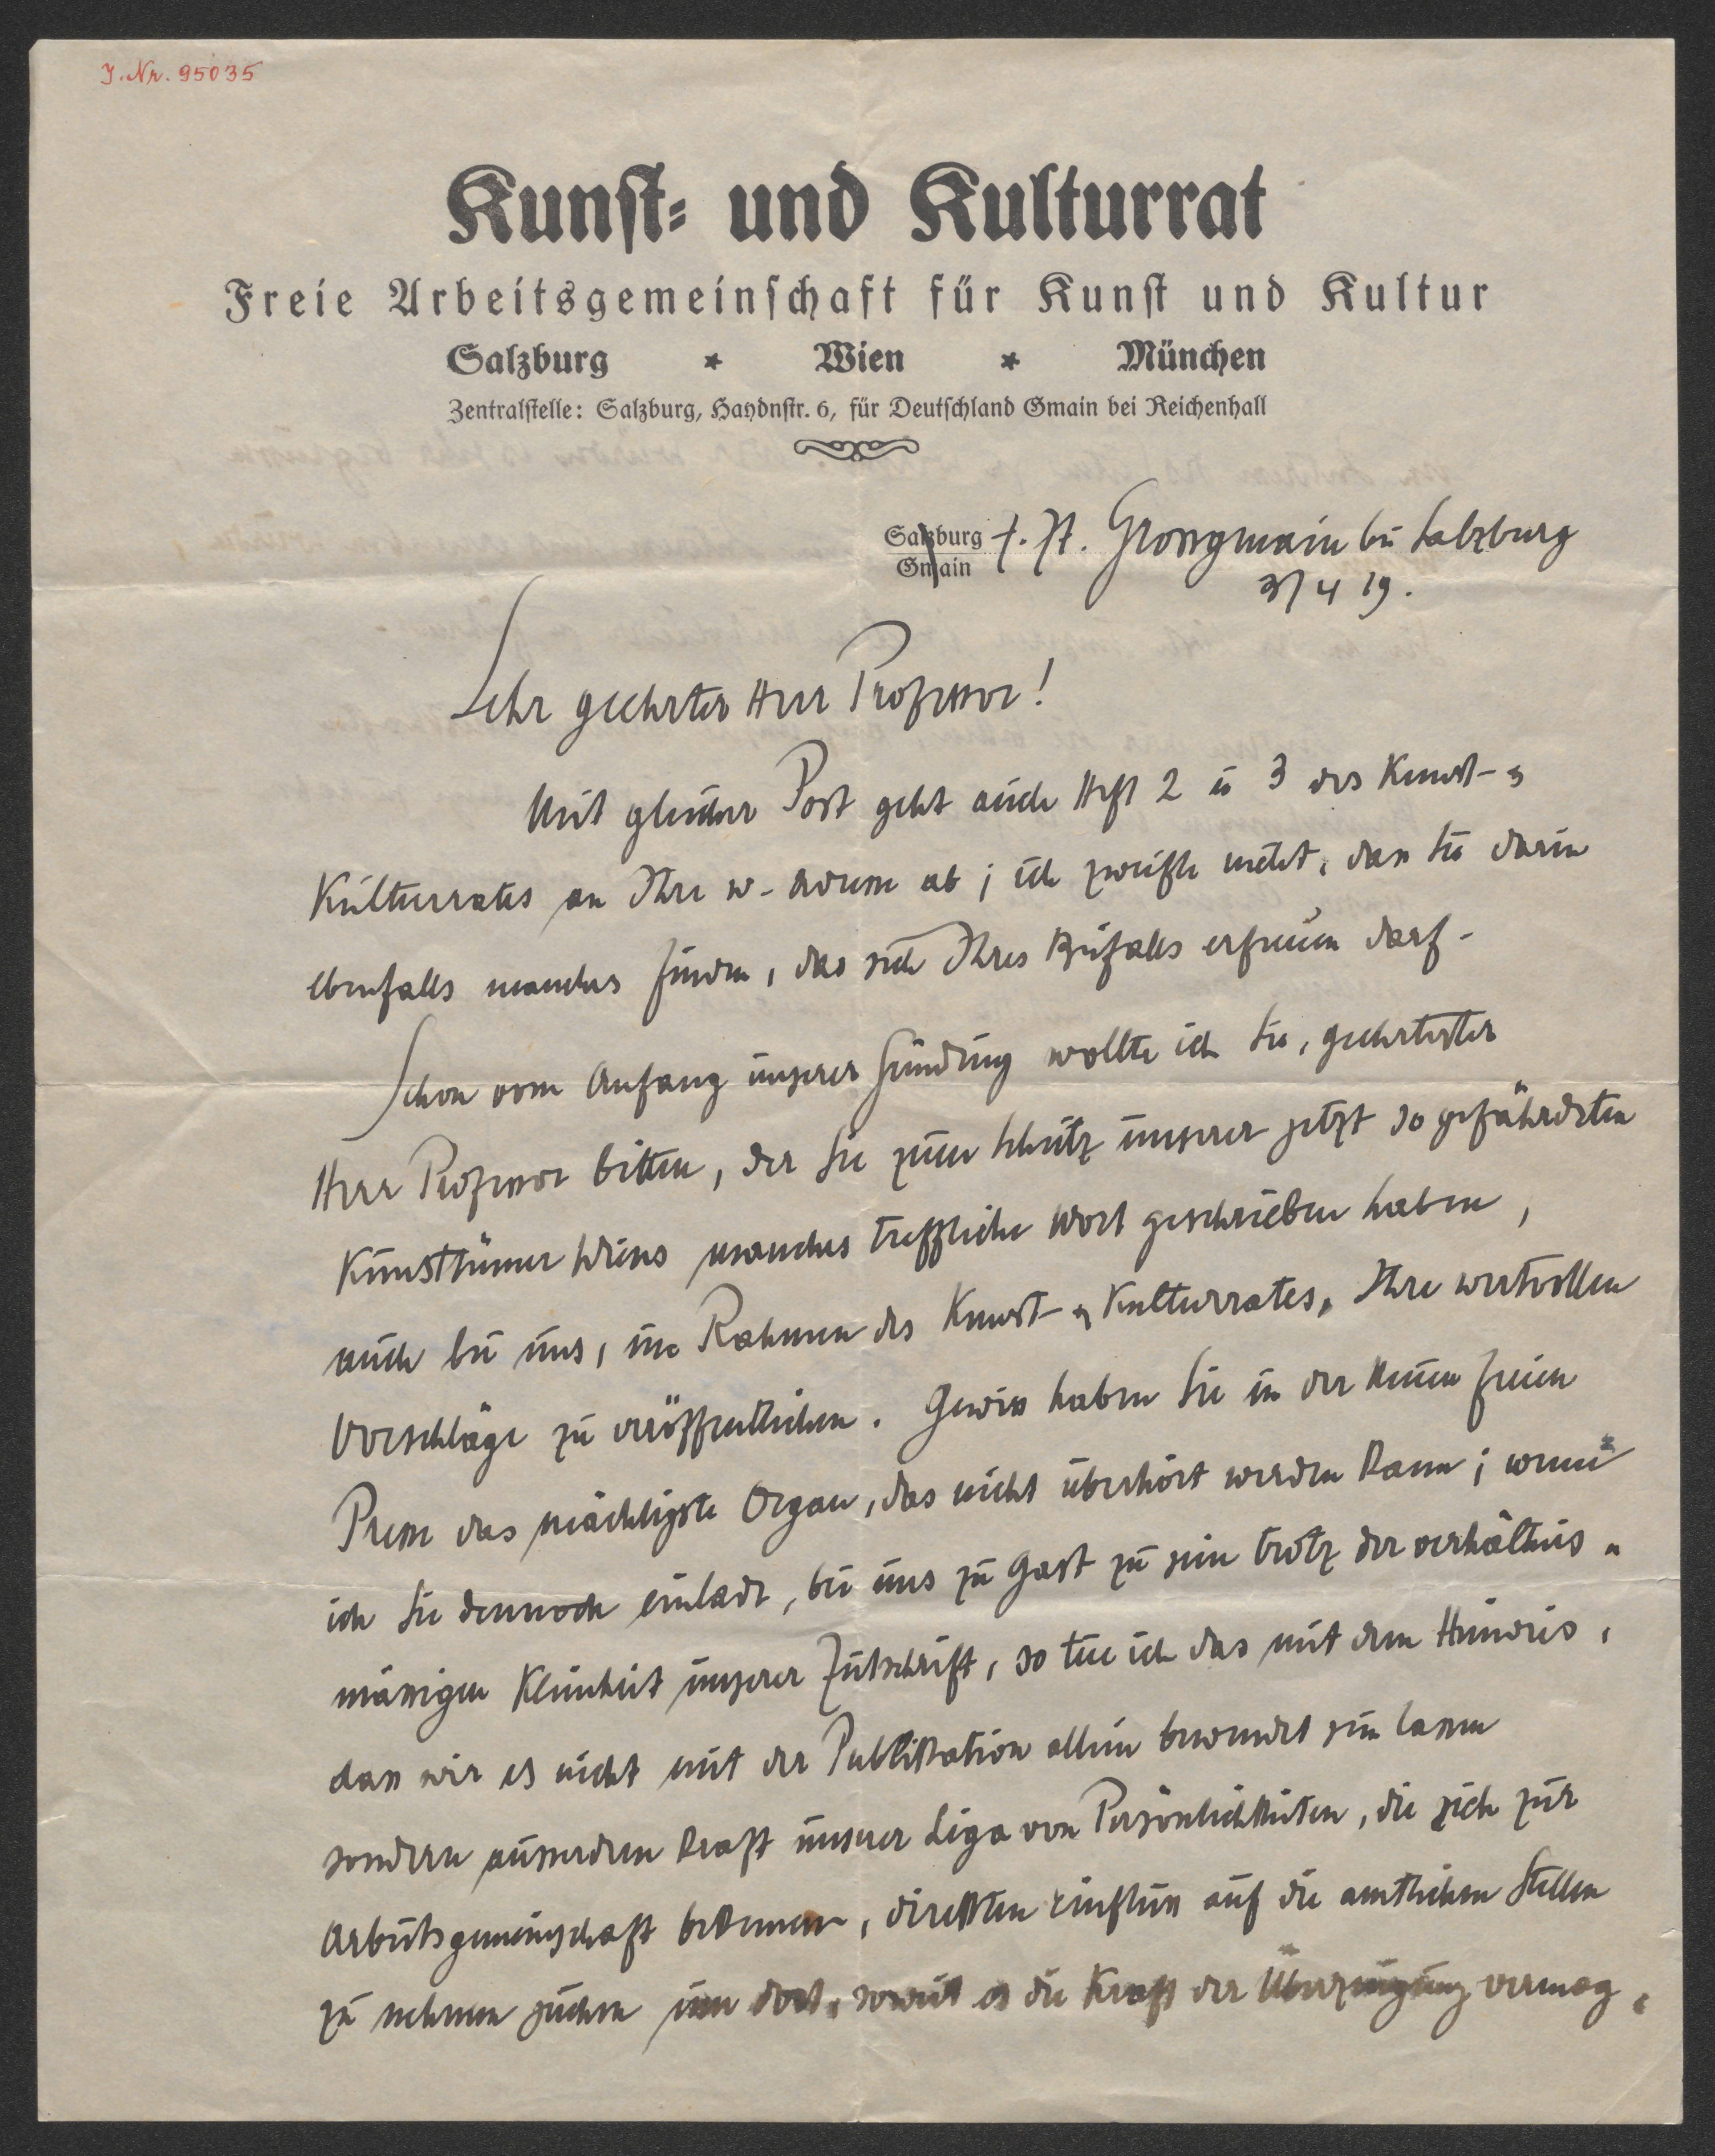 J. Nr. 95035
Kunst- und Kulturrat
Freie Arbeitsgemeinschaft für Kunst und Kultur
Salzburg * Wien * München
Zentralstelle: Salzburg, Haydnstr. 6, für Deutschland Gmain bei Reichenhall
Salzburg z. Zt. Grossgmain bei Salzburg
Gmain
3/4 19.
Sehr geehrter Herr Professor!
Mit gleicher Post geht auch Heft 2 u 3 des Kunst- &
Kulturrates an Ihre w. Adresse ab; ich zweifle nicht, dass Sie darin
ebenfalls manches finden, das sich Ihres Beifalls erfreuen darf.
Schon vom Anfang unserer Gründung wollte ich Sie, geehrtester
Herr Professor bitten, der Sie zum Schutz unserer jetzt so gefährdeten
Kunsttümer Wiens manches treffliche Wort geschrieben haben,
auch bei uns, im Rahmen des Kunst- & Kulturrates, Ihre wertvollen
Vorschläge zu veröffentlichen. Gewiss haben Sie in der Neuen Freien
Presse das mächtigste Organ, das nicht überhört werden kann; wenn
ich Sie dennoch einlade, bei uns zu Gast zu sein trotz der verhältnis-
mässigen Kleinheit unserer Zeitschrift, so tue ich das mit dem Hinweis,
dass wir es nicht mit der Publikation allein bewendet sein lassen
sondern ausserdem kraft unserer Liga von Persönlichkeiten, die sich zur
Arbeitsgemeinschaft bekennen, direkten Einfluss auf die amtlichen Stellen
zu nehmen suchen um dort, soweit es die Kraft der Überzeugung vermag,